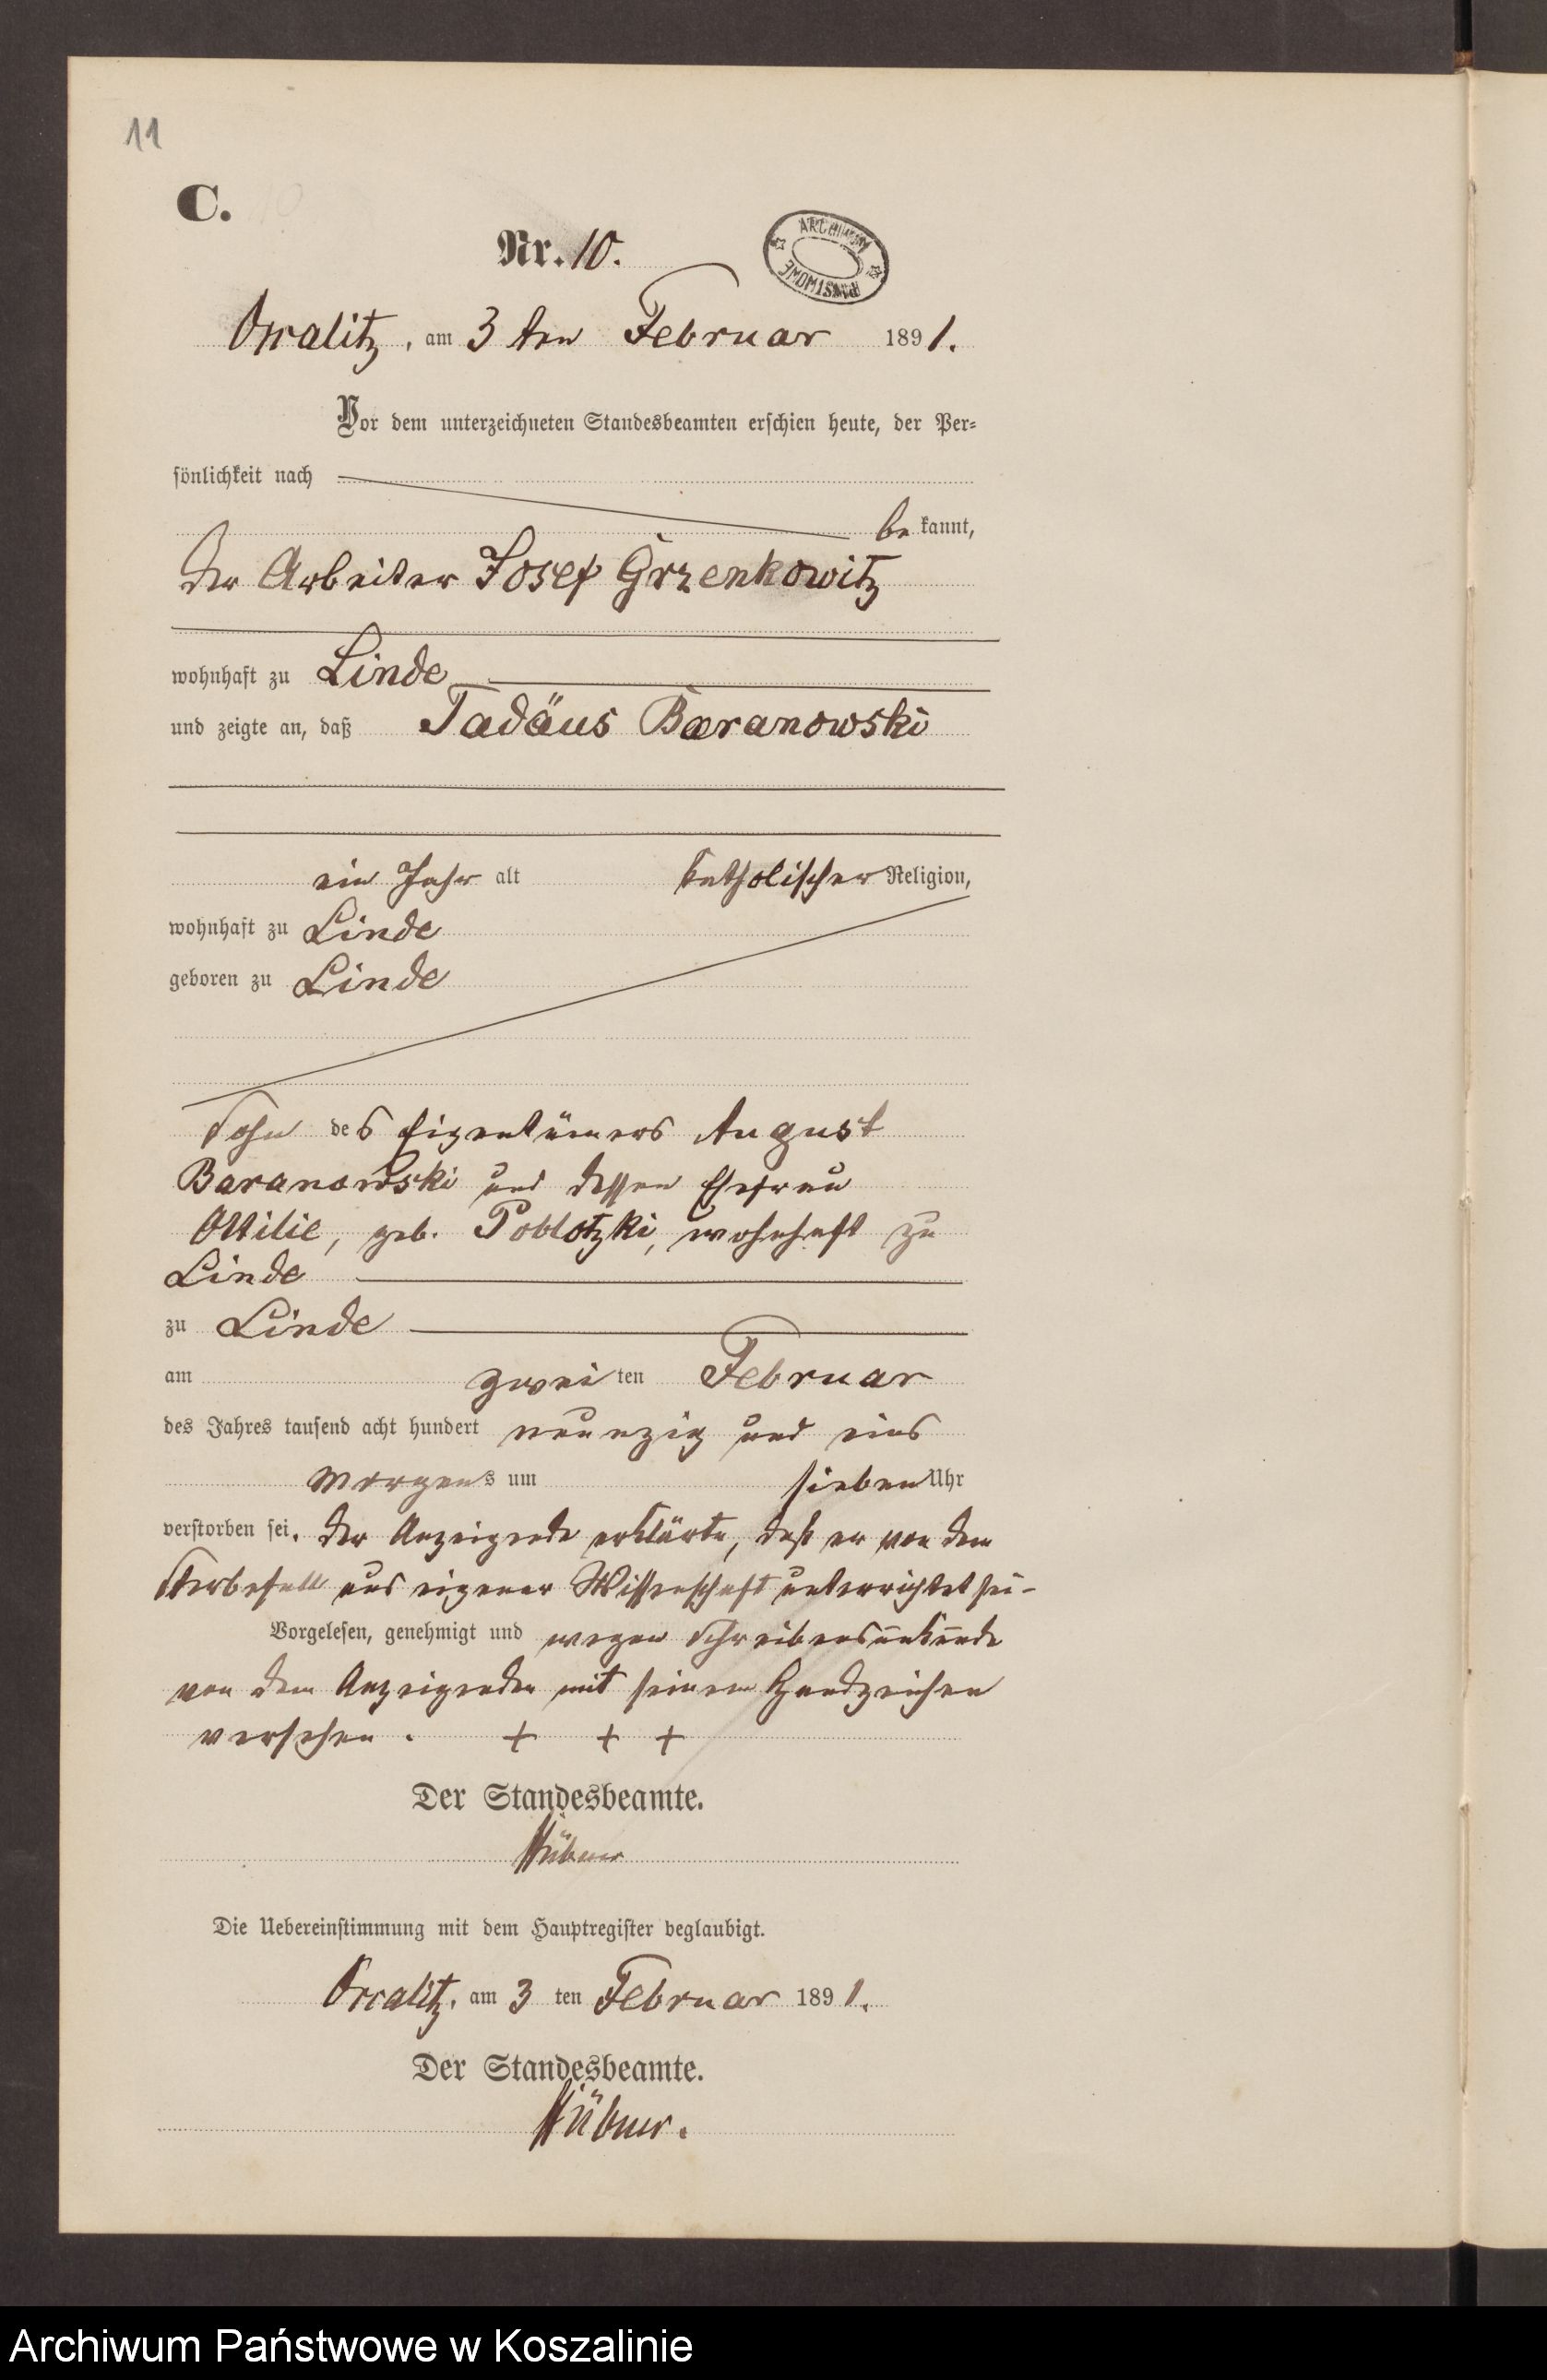 11
C.
Nr. 10.
ARCHIWUM
PAŃSTWOWE
am 3 ten Februar 1891.
Vor dem unterzeichneten Standesbeamten erschien heute, der Per-
sönlichkeit nach
bekannt,
der Arbeiter Josef Grzenkowitz
wohnhaft zu Linde
und zeigte an, daß Tadäus Baranowski
ein Jahr alt katholischer Religion,
wohnhaft zu Linde
geboren zu Linde
Sohn des Eigentümers August
Baranowski und dessen Ehefrau
Ottilie, geb. Poblotzki, wohnhaft zu
Linde
zu Linde
am zweiten Februar
des Jahres tausend acht hundert neunzig und eins
Morgens um sieben Uhr
verstorben sei. Der Anzeigende erklärte, daß er von dem
Sterbefall aus eigener Wissenschaft unterrichtet sei-
Vorgelesen, genehmigt und wegen Schreibensunkunde
von dem Anzeigenden mit seinem Handzeichen
versehen. + + +
Der Standesbeamte.
Hübner
Die Uebereinstimmung mit dem Hauptregister beglaubigt.
am 3 ten Februar 1891.
Der Standesbeamte.
Hübner.
Archiwum Państwowe w Koszalinie